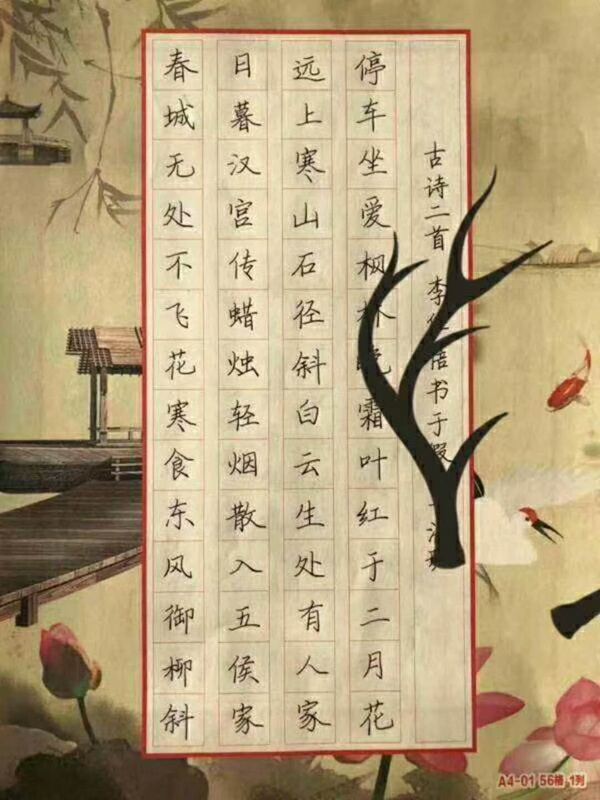 春城无处不飞花寒食东风御柳斜
日暮汉宫传蜡烛轻烟散入五侯家
远上寒山石径斜白云生处有人家
停车坐爱枫林晚霜叶红于二月花
古诗二首 李 书于
A4-01 56格 1列